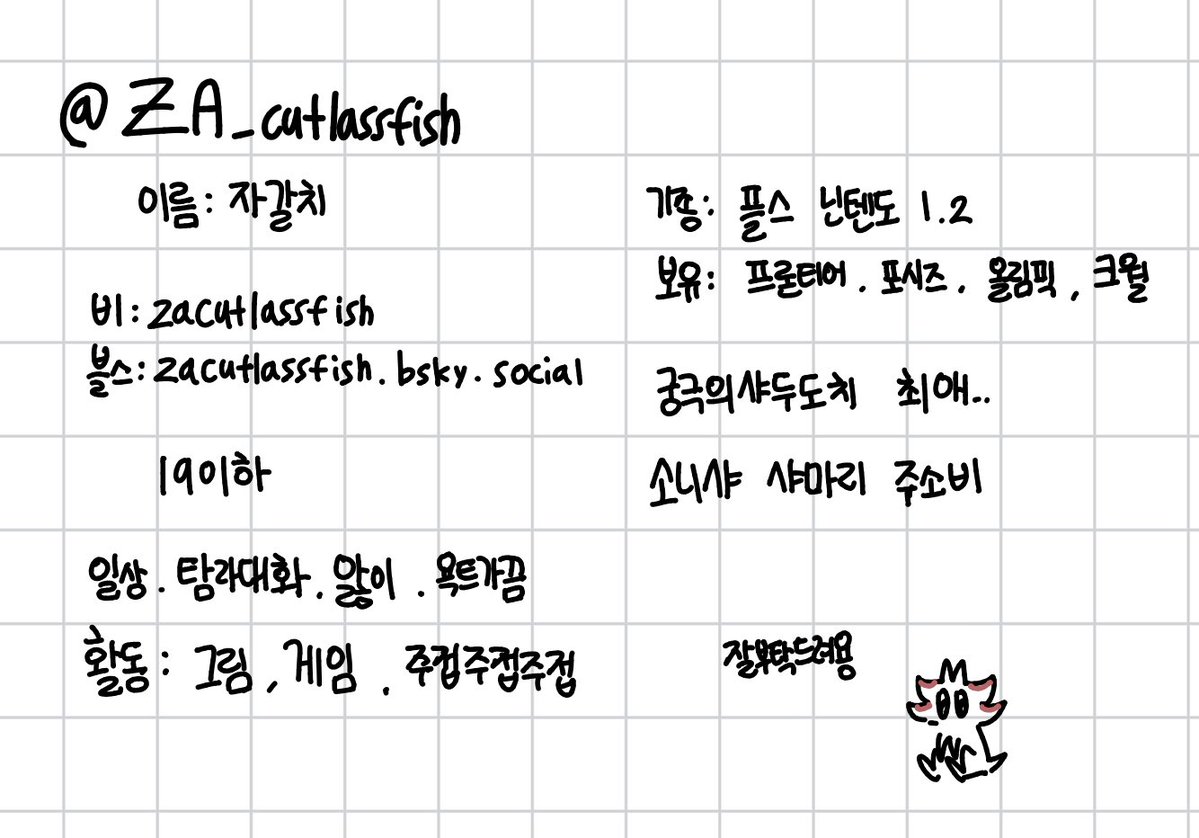 @ZA_cutlassfish
이름: 자갈치
비: zacutlassfish
블스: zacutlassfish.bsky.social
19이하
일상. 탐라대화. 앓이. 욕트가끔
활동: 그림, 게임. 주접주접주접
기종: 플스 닌텐도 1.2
보유: 프론티어. 포시즈. 올림픽, 크월
궁극의샤두도치 최애..
소니샤 샤마리 주소비
잘부탁드려용